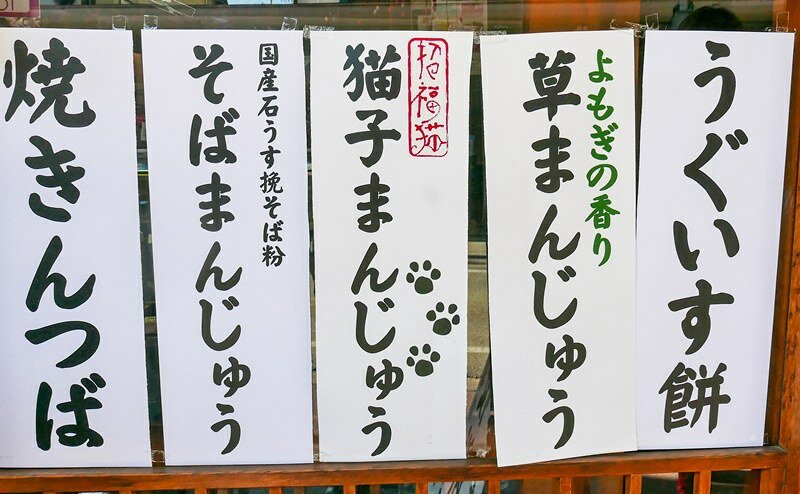 うぐいす餅
よもぎの香り
草まんじゅう
招福猫
猫子まんじゅう
国産石うす挽そば粉
そばまんじゅう
焼きんつば